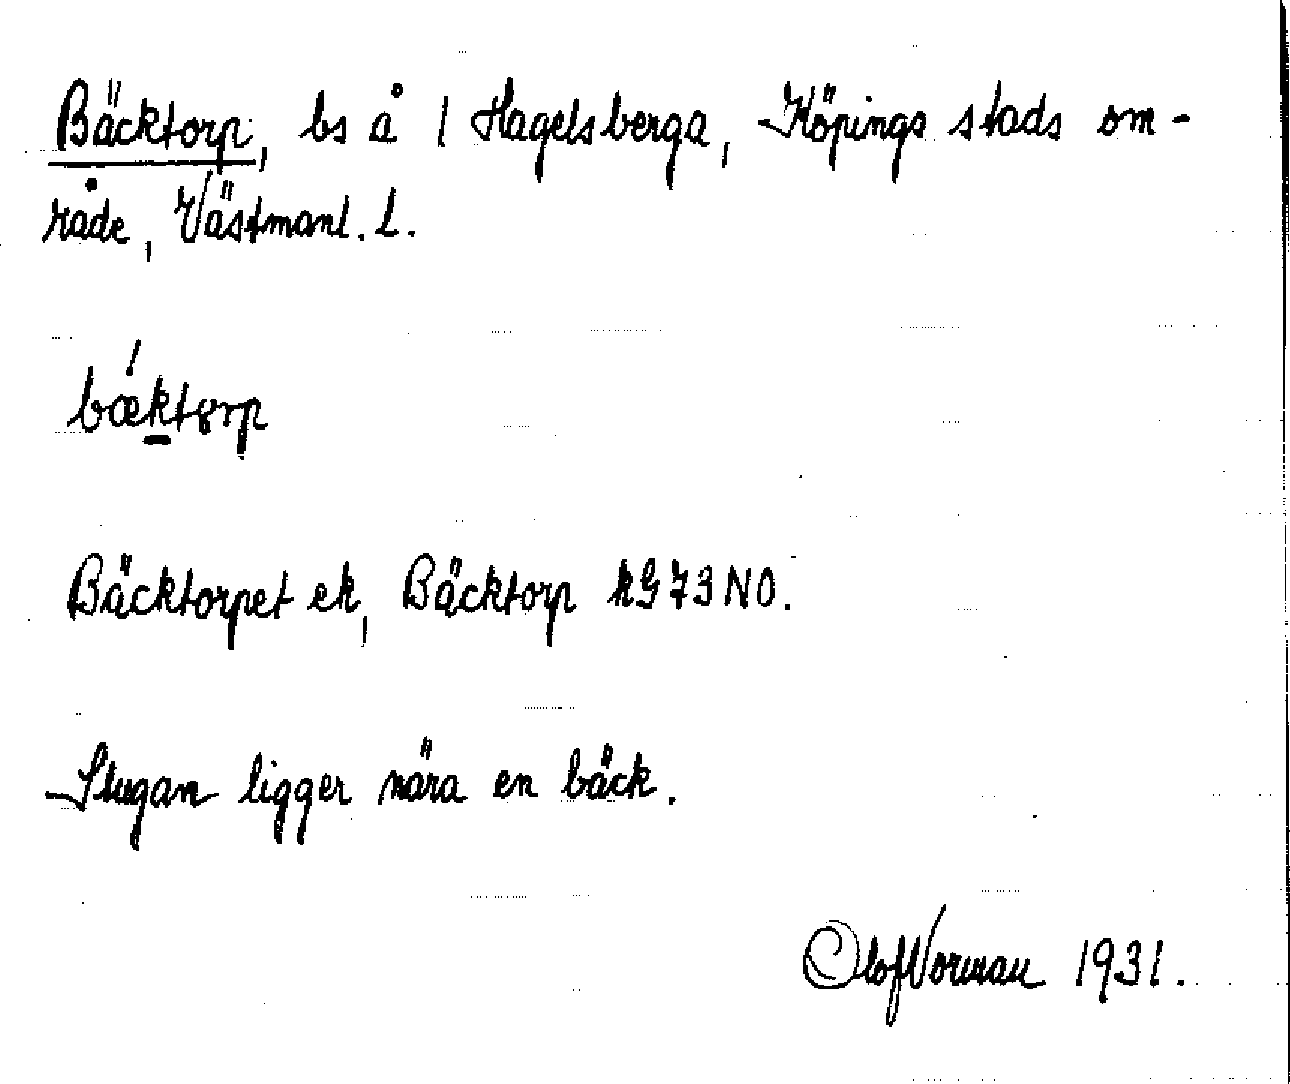 Bäcktorp, bs å 1 Hagelsberga, Köpings stads om-
råde, Västmanl. l.
bǽktorp
Bäcktorpet ek, Bäcktorp kG 73 NO.
Stugan ligger nära en bäck.
Olof Norman 1931.